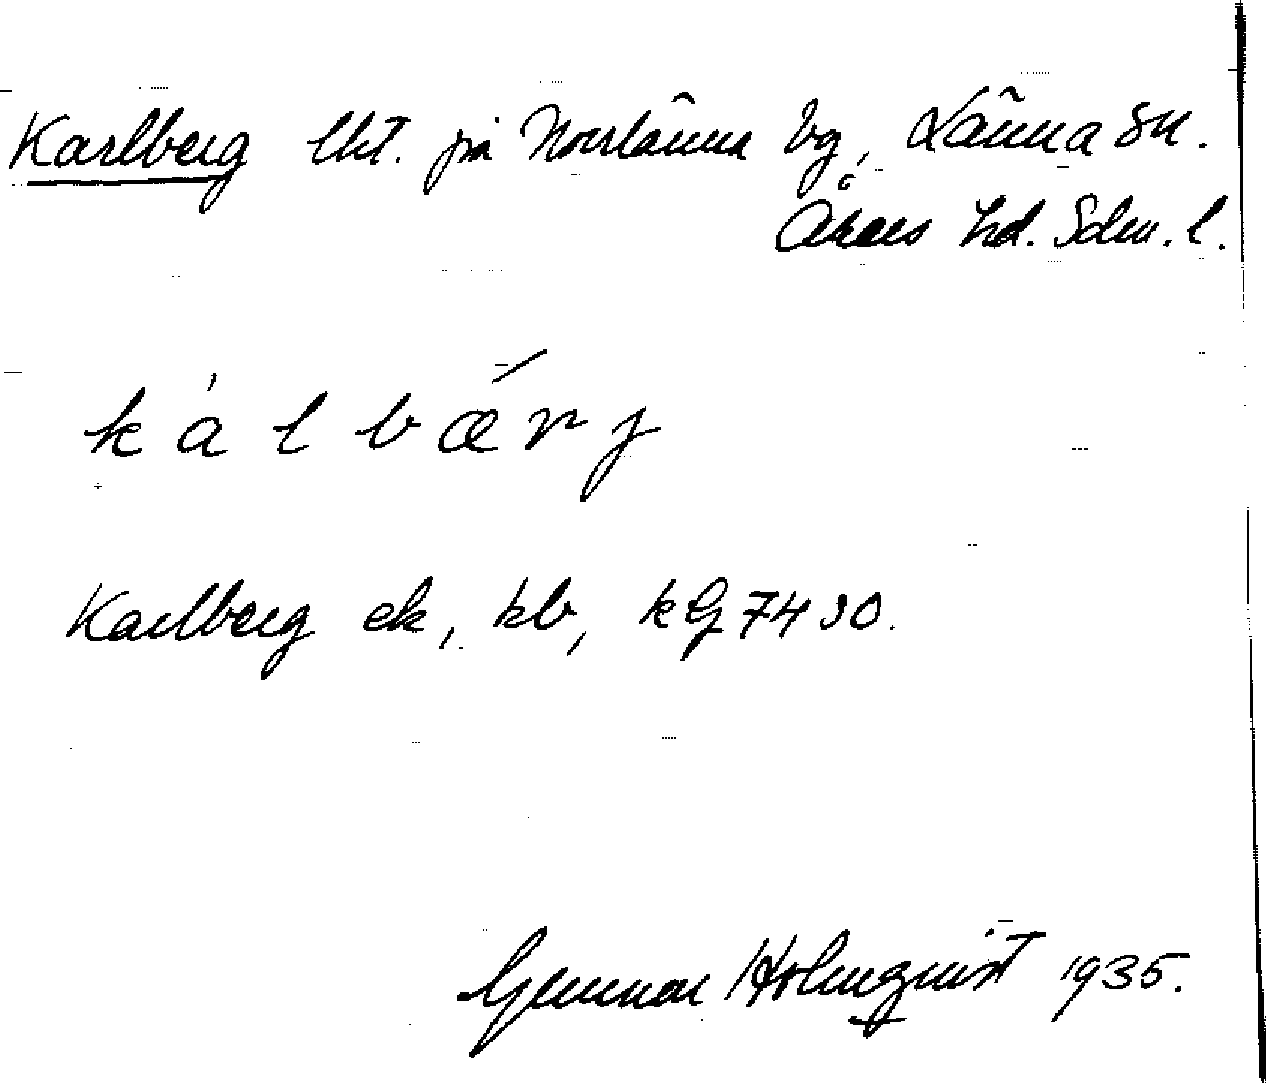 Karlberg lht. på Norrlänna äg, Länna sn.
Åkers hd. Sdm. l.
kálbǽrj
Karlberg ek, kb, kG 7430.
Gunnar Holmquist 1935.